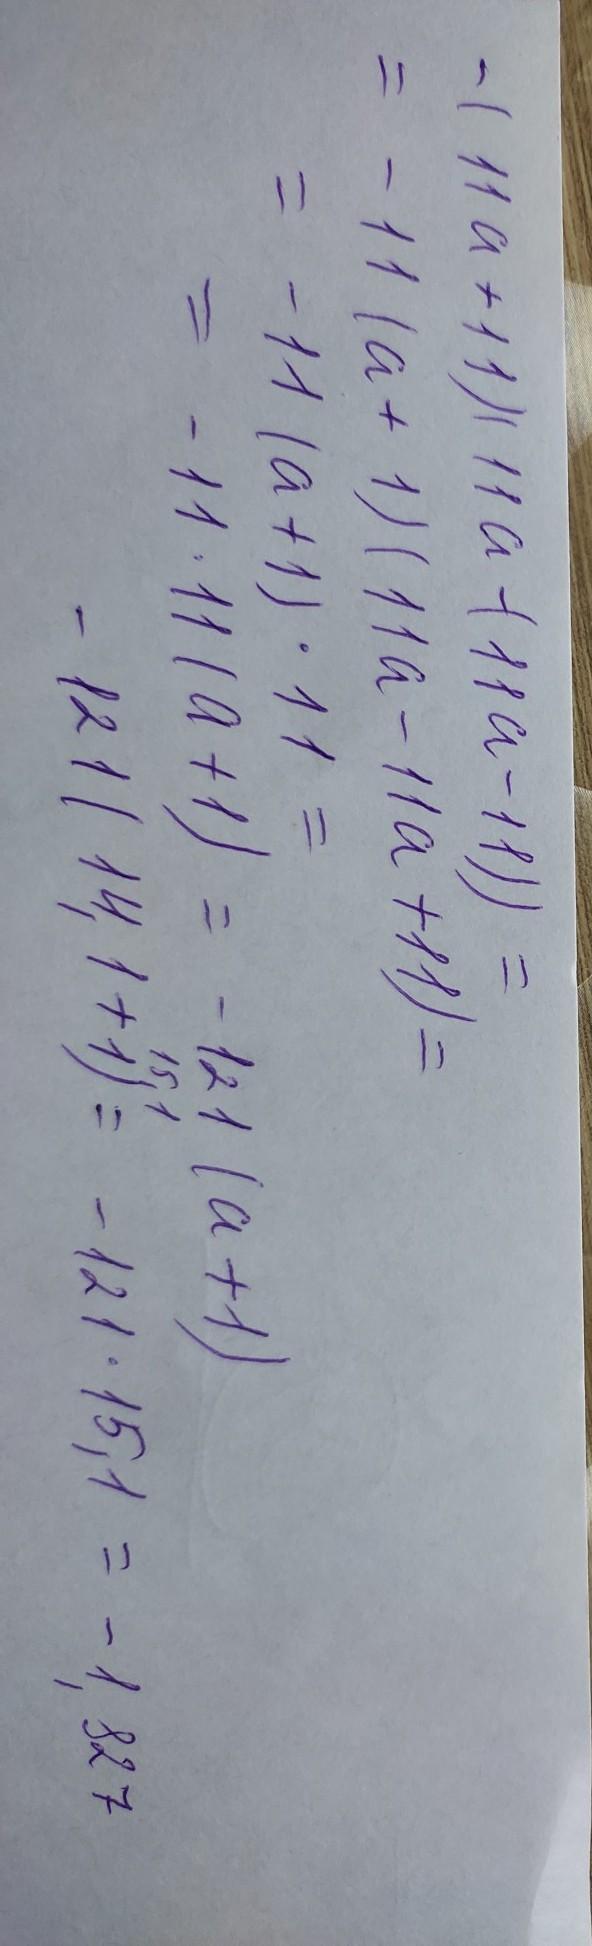 -(11a+11)(11a-(11a-11))=
= -11(a+1)(11a-11a+11)=
= -11(a+1)·11=
= -11·11(a+1) = -121(a+1)
15,1
-121(14,1+1)= -121·15,1 = -1,827